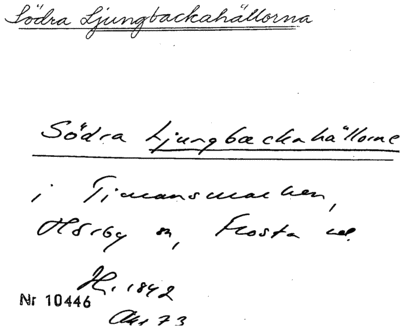 Södra Ljungbackahällorna
Södra Ljungbackahällorne
i Timansmarken,
Hörby sn, Frosta
Hr. 1842
Nr 10446
Akt 73